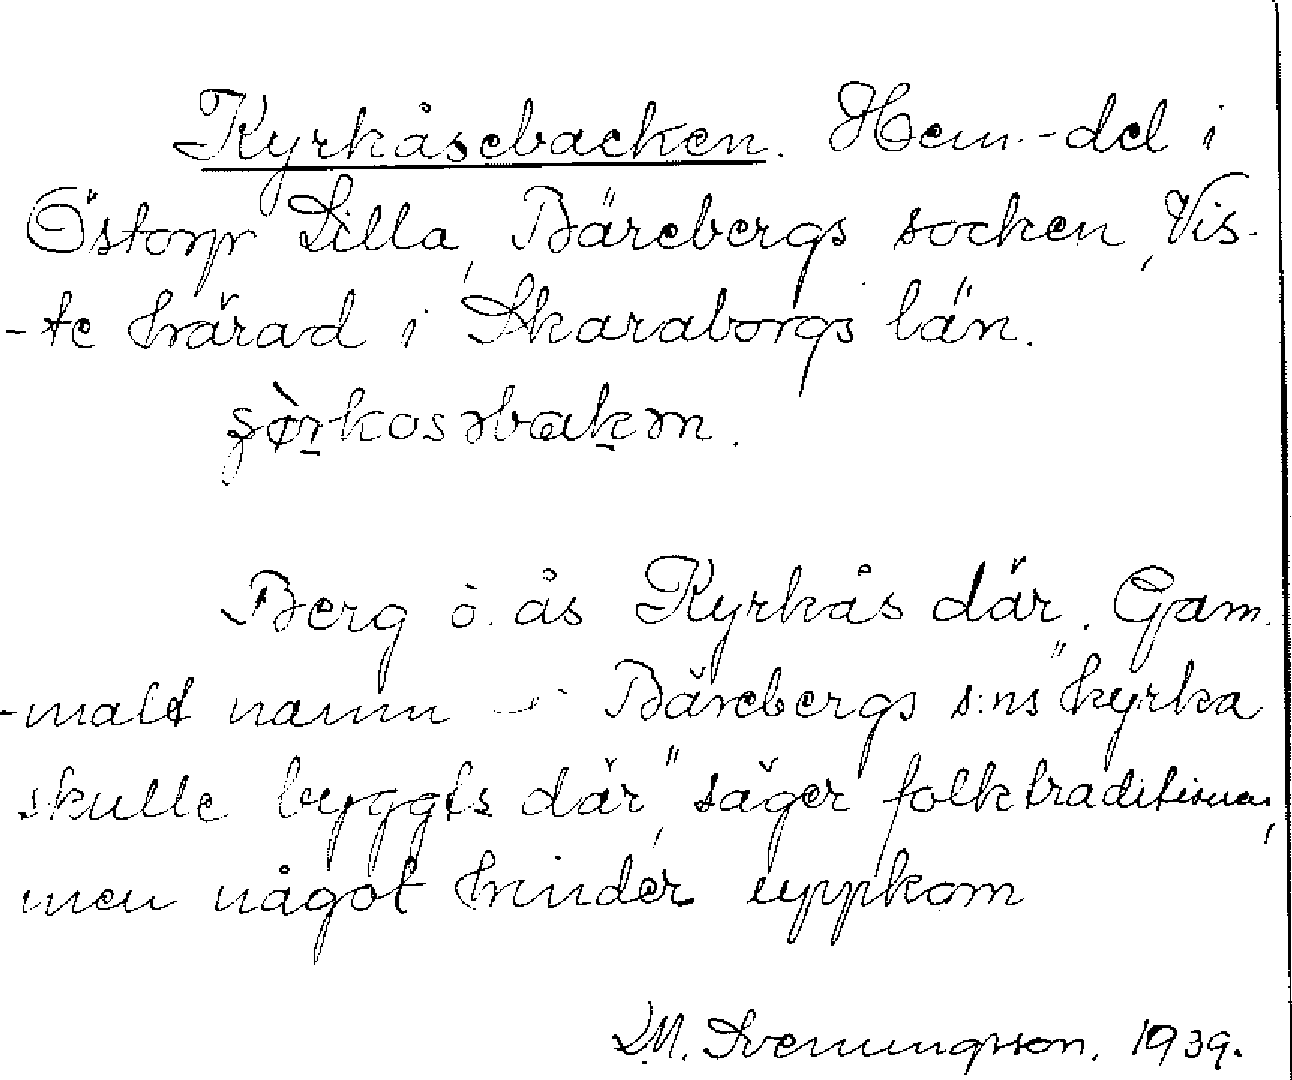 Kyrkåsebacken. Hem.-del i
Östorp Lilla, Bärebergs socken, Vis-
-te härad i Skaraborgs län.
Berg o. ås Kyrkås där. Gam-
-malt namn - Bärebergs s:ns "kyrka
skulle byggts där," säger folktraditionen,
men något hinder uppkom
D.M. Svenungsson. 1939.